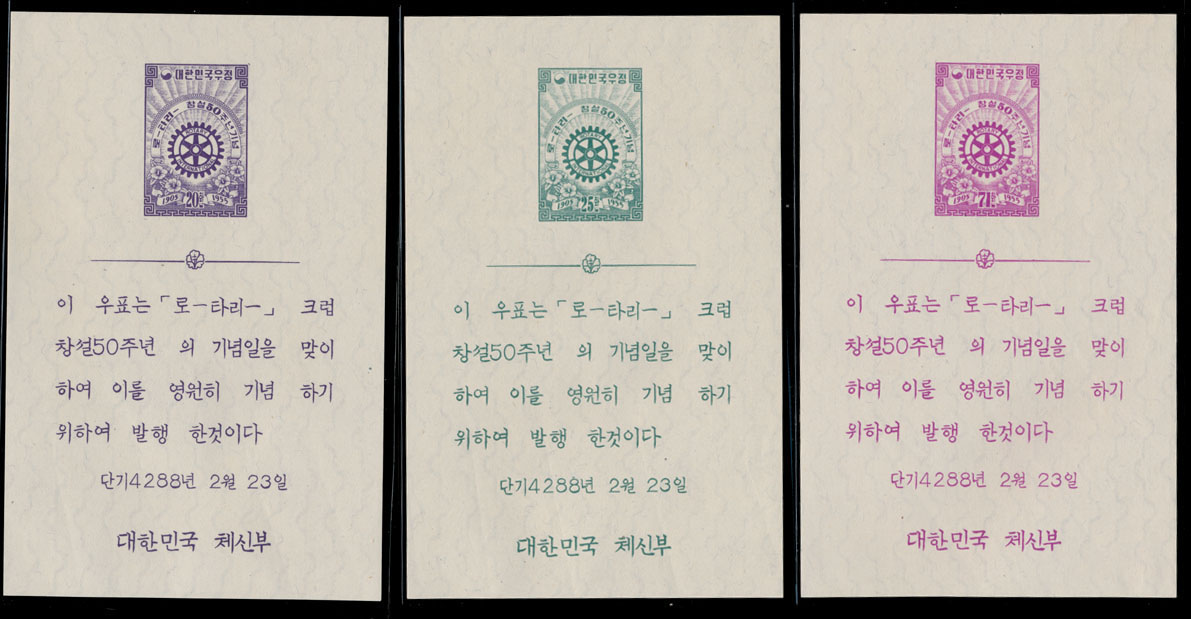 대한민국우정
로ー타리ー 창설50주년기념
ROTARY
INTERNATIONAL
1905 20환 1955
이 우표는 「로ー타리ー」 크럽
창설50주년 의 기념일을 맞이
하여 이를 영원히 기념 하기
위하여 발행 한것이다
단기4288년 2월 23일
대한민국 체신부
대한민국우정
로ー타리ー 창설50주년기념
ROTARY
INTERNATIONAL
1905 25환 1955
이 우표는 「로ー타리ー」 크럽
창설50주년 의 기념일을 맞이
하여 이를 영원히 기념 하기
위하여 발행 한것이다
단기4288년 2월 23일
대한민국 체신부
대한민국우정
로ー타리ー 창설50주년기념
ROTARY
INTERNATIONAL
1905 71환 1955
이 우표는 「로ー타리ー」 크럽
창설50주년 의 기념일을 맞이
하여 이를 영원히 기념 하기
위하여 발행 한것이다
단기4288년 2월 23일
대한민국 체신부